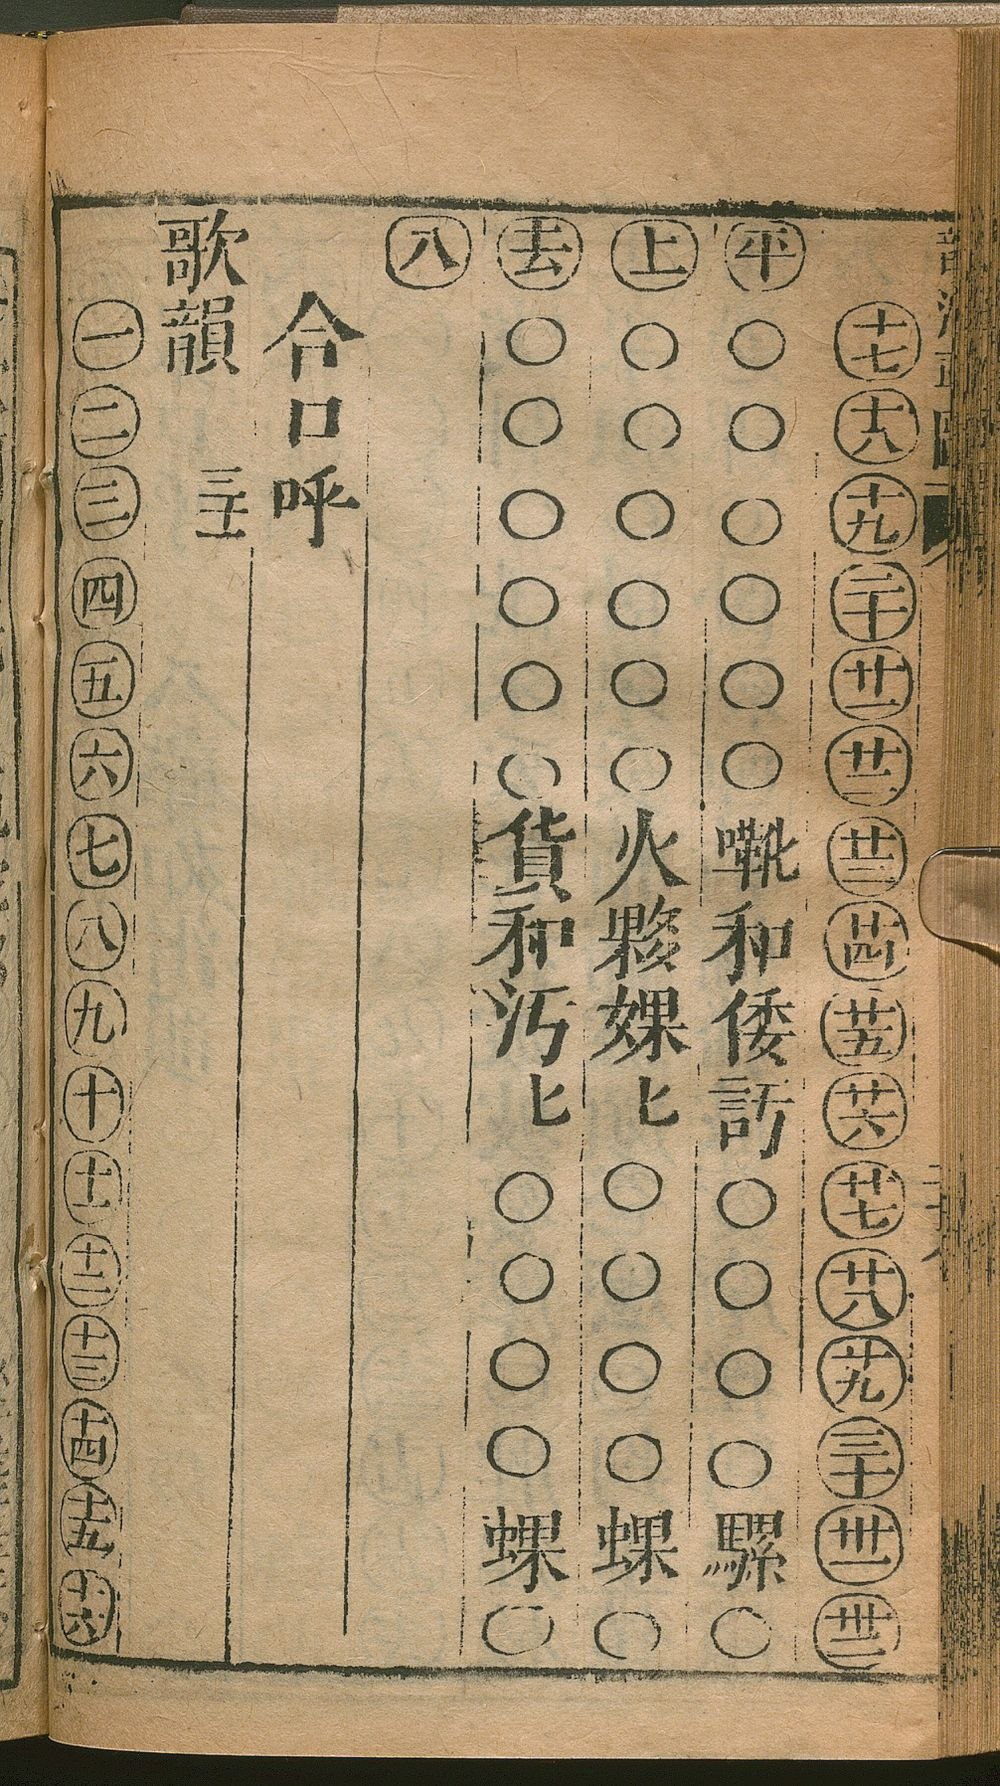 十七 十八 十九 二十 廿一 廿二 廿三 廿四 廿五 廿六 廿七 廿八 廿九 三十 卅一 卅二
平 ○ ○ ○ ○ ○ ○ 和 倭 ○ ○ ○ ○ 騾 ○
上 ○ ○ ○ ○ ○ ○ 火 夥 婐 ○ ○ ○ ○ ○
去 ○ ○ ○ ○ ○ ○ 貨 和 汚 ○ ○ ○ ○ ○
八
合口呼
歌韻
一 二 三 四 五 六 七 八 九 十 十一 十二 十三 十四 十五 十六